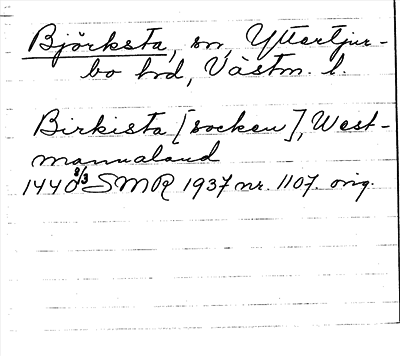 Björksta, sn, Yttertjur-
bo hrd, Västm. l.
Birkista [socken], West-
mannaland
1440 8/3 SMR 1937 nr. 1107. orig.